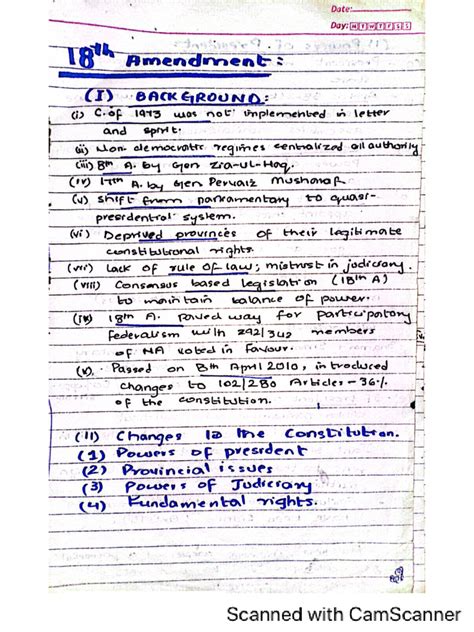 Date:
Day: M T W T F S S
18th Amendment:
(I) BACKGROUND:
(i) C. of 1973 was not implemented in letter
and spirit.
(ii) Non-democratic regimes centralized all authority
(iii) 8th A. by Gen Zia-ul-Haq.
(iv) 17th A. by Gen Pervaiz Musharaf
(v) shift from parliamentary to quasi-
presidential system.
(vi) Deprived provinces of their legitimate
constitutional rights.
(vii) lack of rule of law; mistrust in judiciary.
(viii) Consensus based legislation (18th A)
to maintain balance of power.
(ix) 18th A. Paved way for participatory
Federalism with 292/342 members
of NA voted in favour.
(x). Passed on 8th April 2010, introduced
changes to 102/280 Articles - 36%
of the constitution.
(II) Changes to the Constitution.
(1) Powers of president
(2) Provincial issues
(3) Powers of Judiciary
(4) Fundamental rights.
Scanned with CamScanner